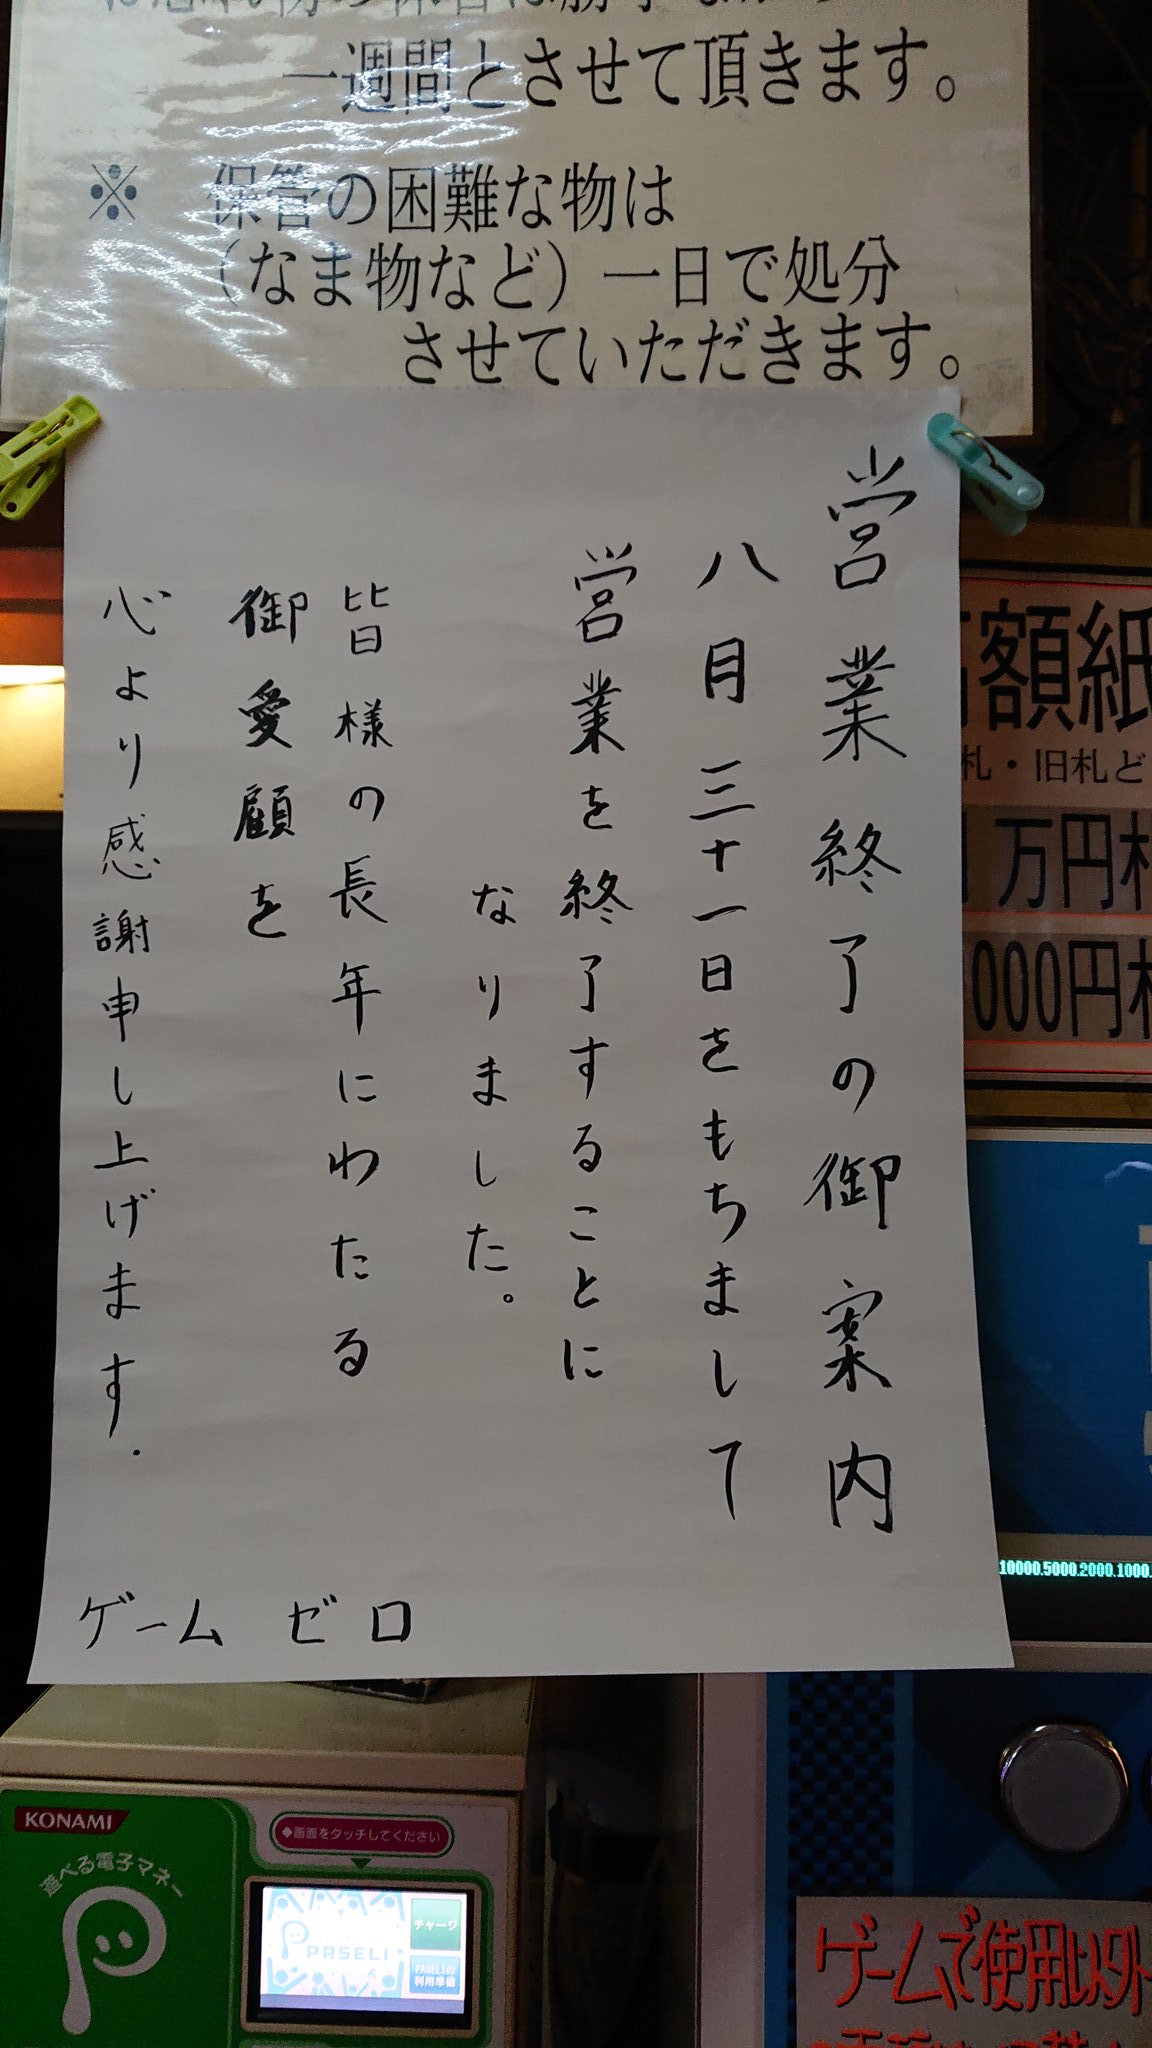 一週間とさせて頂きます。
※ 保管の困難な物は
（なま物など）一日で処分
させていただきます。
営業終了の御案内
八月三十一日をもちまして
営業を終了することに
なりました。
皆様の長年にわたる
御愛顧を
心より感謝申し上げます.
ゲームゼロ
額紙
札・旧札ど
万円札
000円札
10000.5000.2000.1000.
KONAMI
遊べる電子マネー
◆画面をタッチしてください
PASELI
チャージ
PASELIの
利用準備
ゲームで使用以外